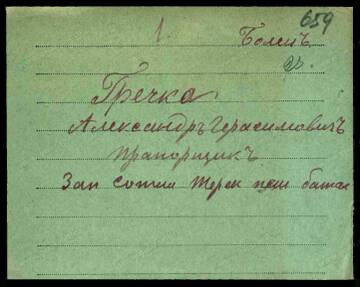 659
1. Боленъ
Гречка
Александръ Герасимовичъ
прапорщикъ
Зап сотня Терск пеш батал